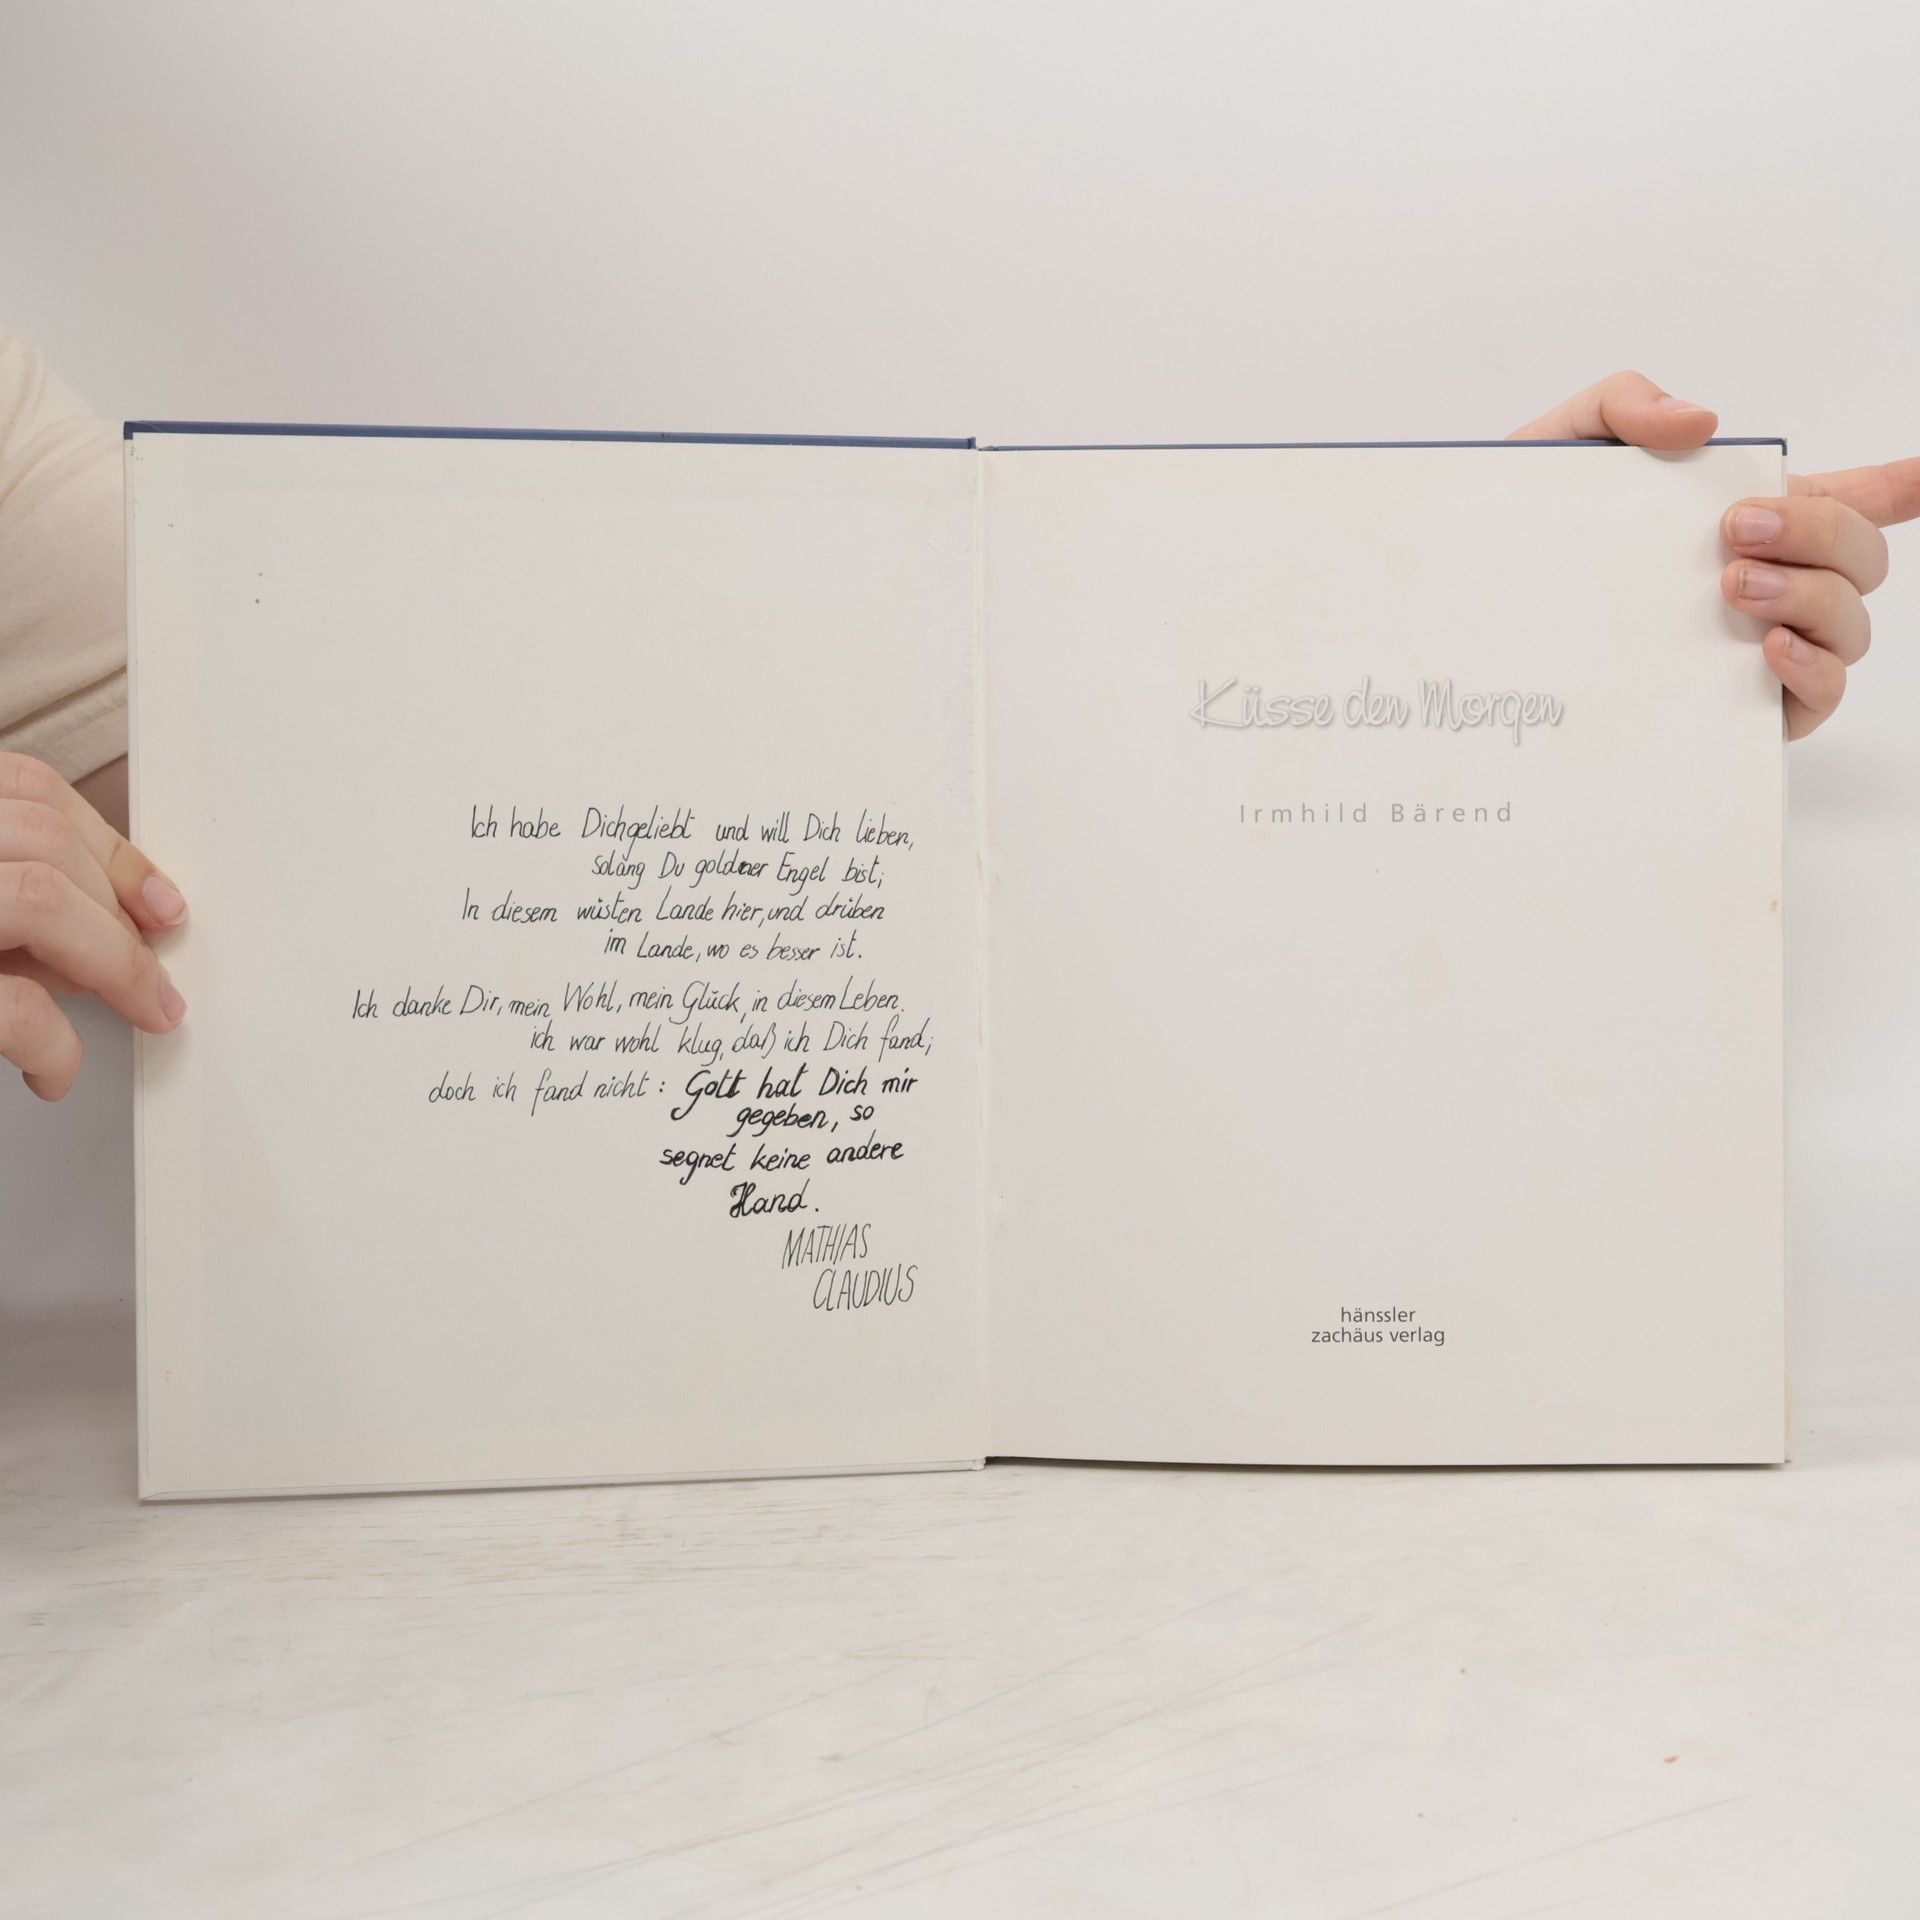 Ich habe Dich geliebt und will Dich lieben,
solang Du goldner Engel bist;
In diesem wüsten Lande hier, und drüben
im Lande, wo es besser ist.
Ich danke Dir, mein Wohl, mein Glück, in diesem Leben.
ich war wohl klug, daß ich Dich fand;
doch ich fand nicht: Gott hat Dich mir
gegeben, so
segnet keine andere
Hand.
MATHIAS
CLAUDIUS
Küsse den Morgen
Irmhild Bärend
hänssler
zachäus verlag